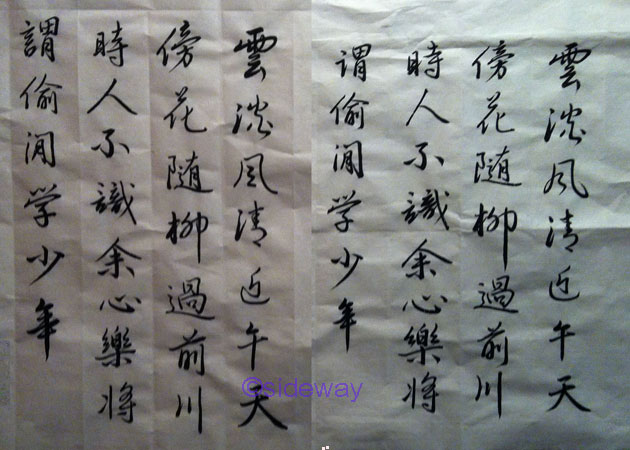 雲淡風清近午天
傍花随柳過前川
時人不識余心樂将
謂偷閒学少年
雲淡風清近午天
傍花随柳過前川
時人不識余心樂将
謂偷閒学少年
©sideway